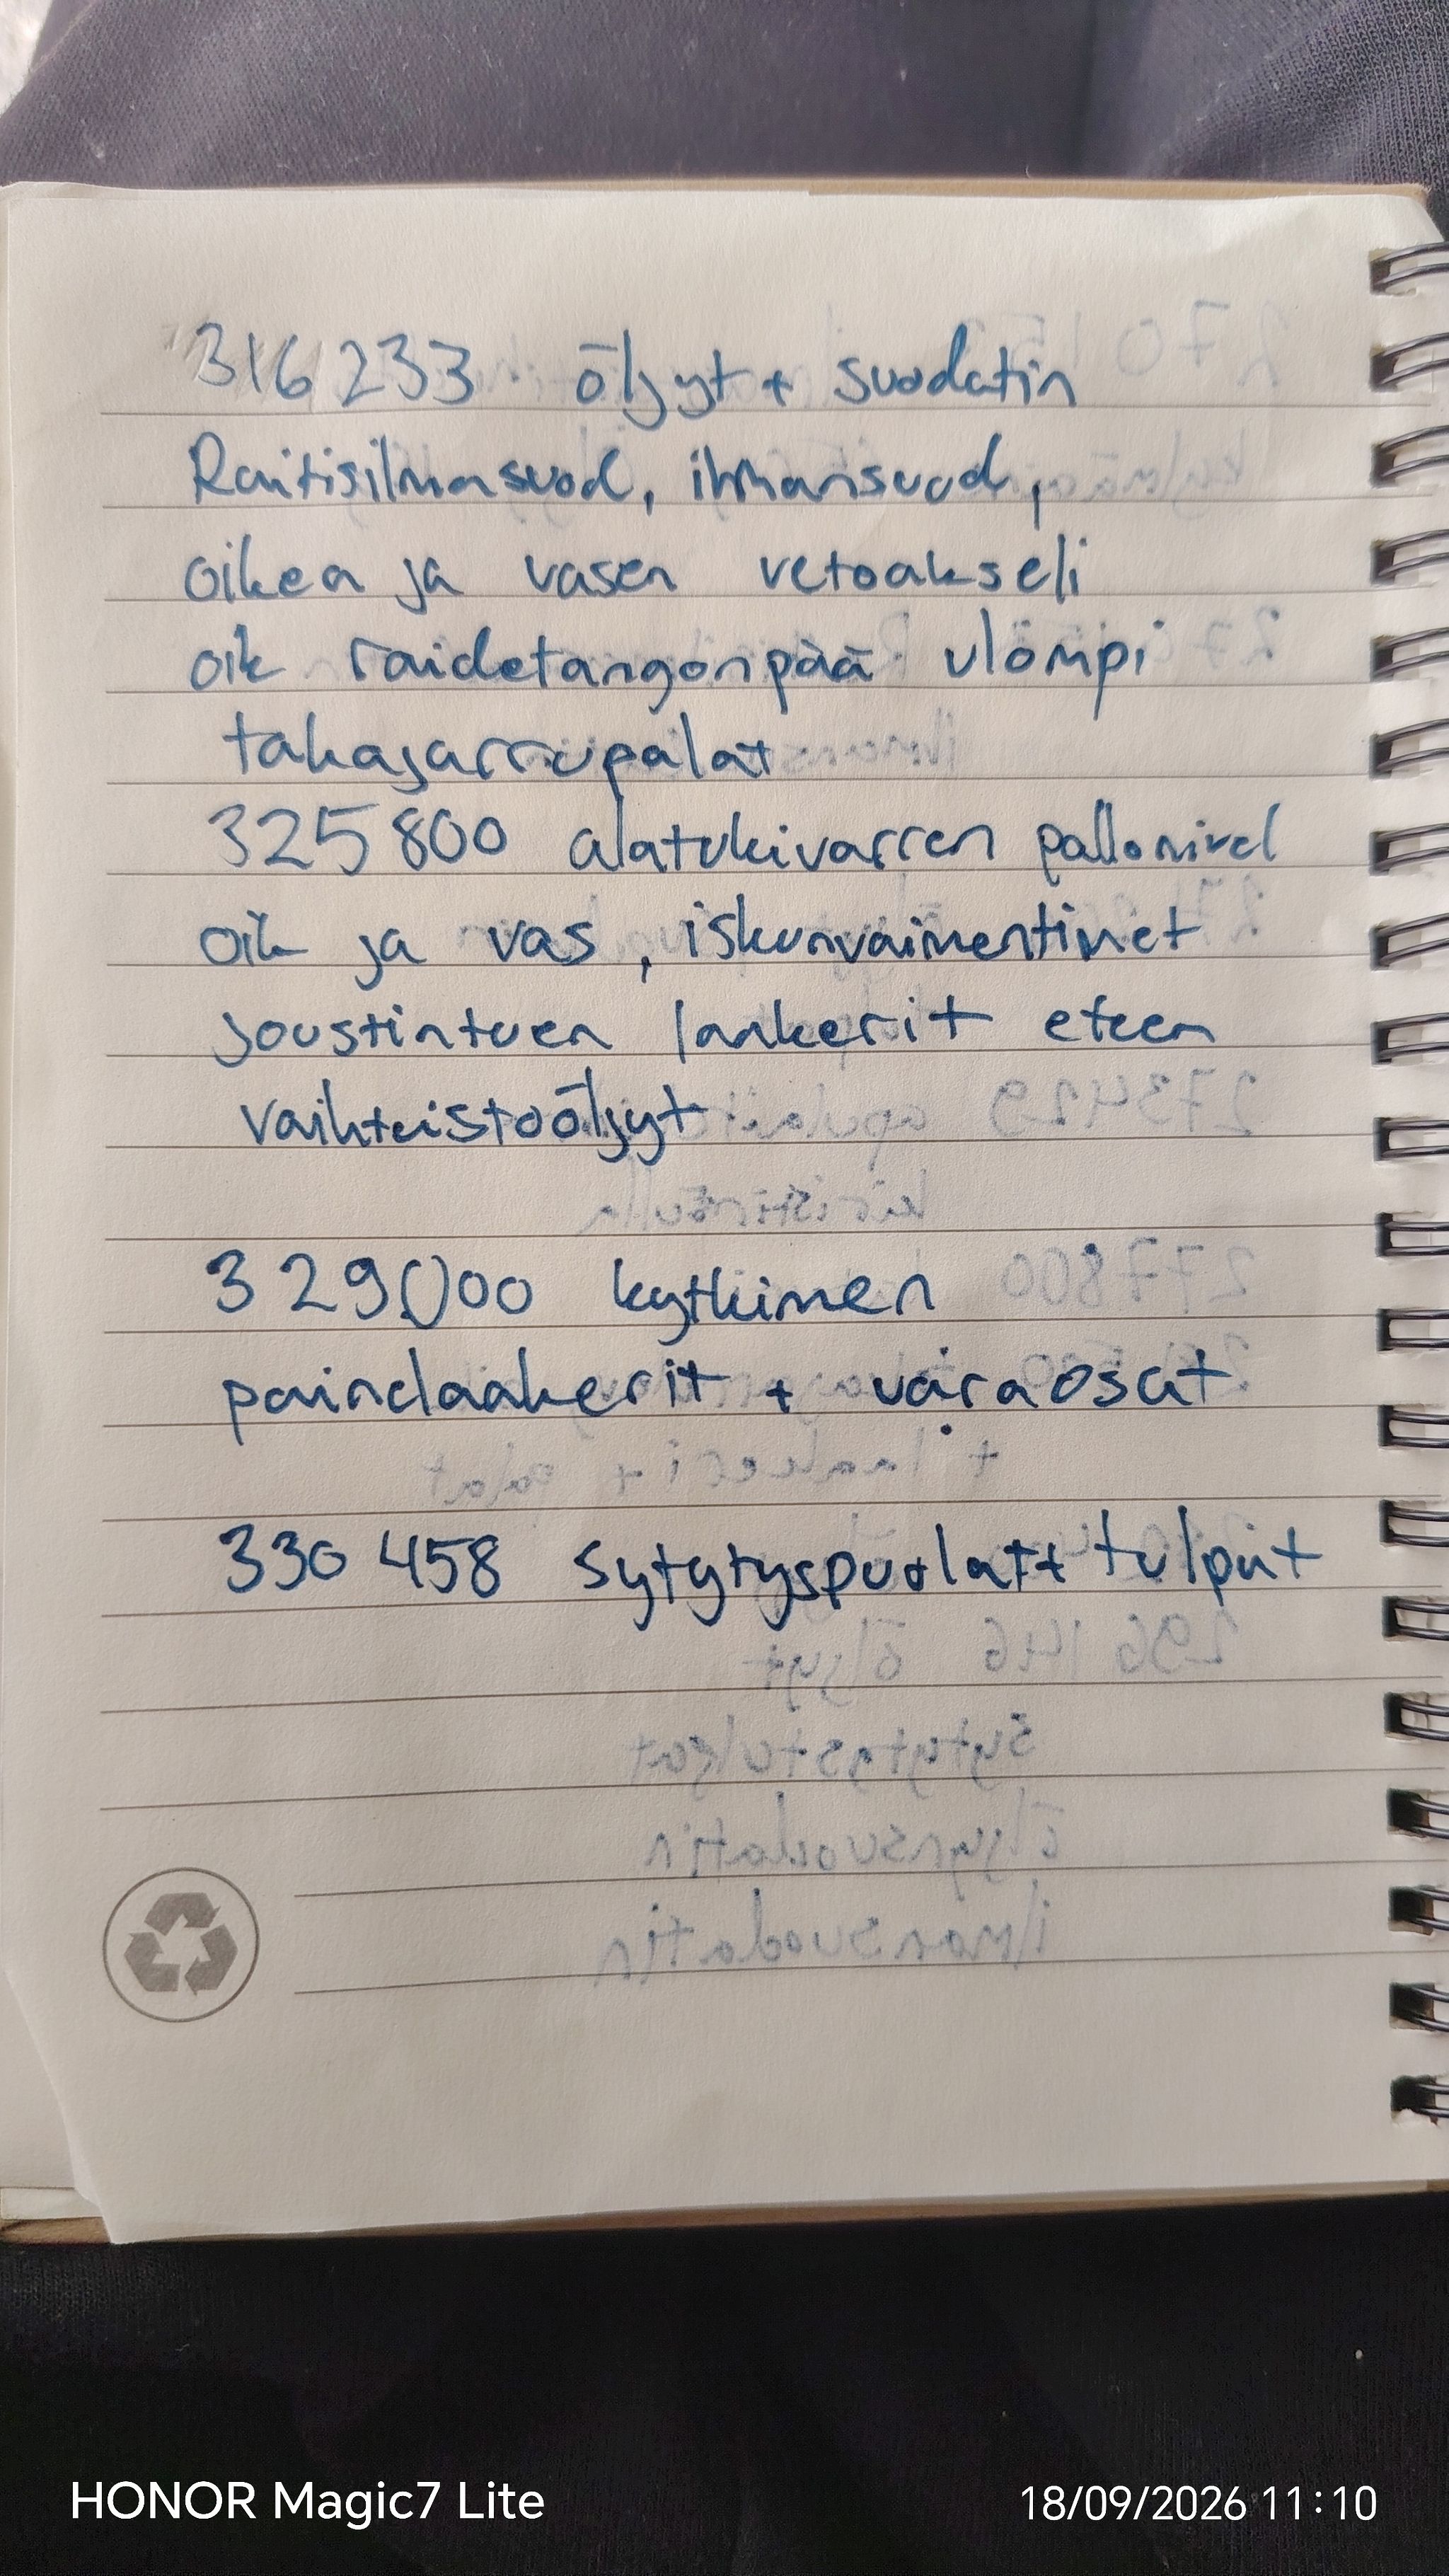 316 233 öljyt + suodatin
Raitisilmasuod, ilmansuod,
oikea ja vasen vetoakseli
oik raidetangonpää ulompi
takajarrupalat
325 800 alatukivarren pallonivel
oik ja vas, iskunvaimentimet
joustintuen laakerit eteen
vaihteistoöljyt
329000 kytkimen
painelaakerit + varaosat
330 458 sytytyspuolat + tulpat
HONOR Magic7 Lite
18/09/2026 11:10